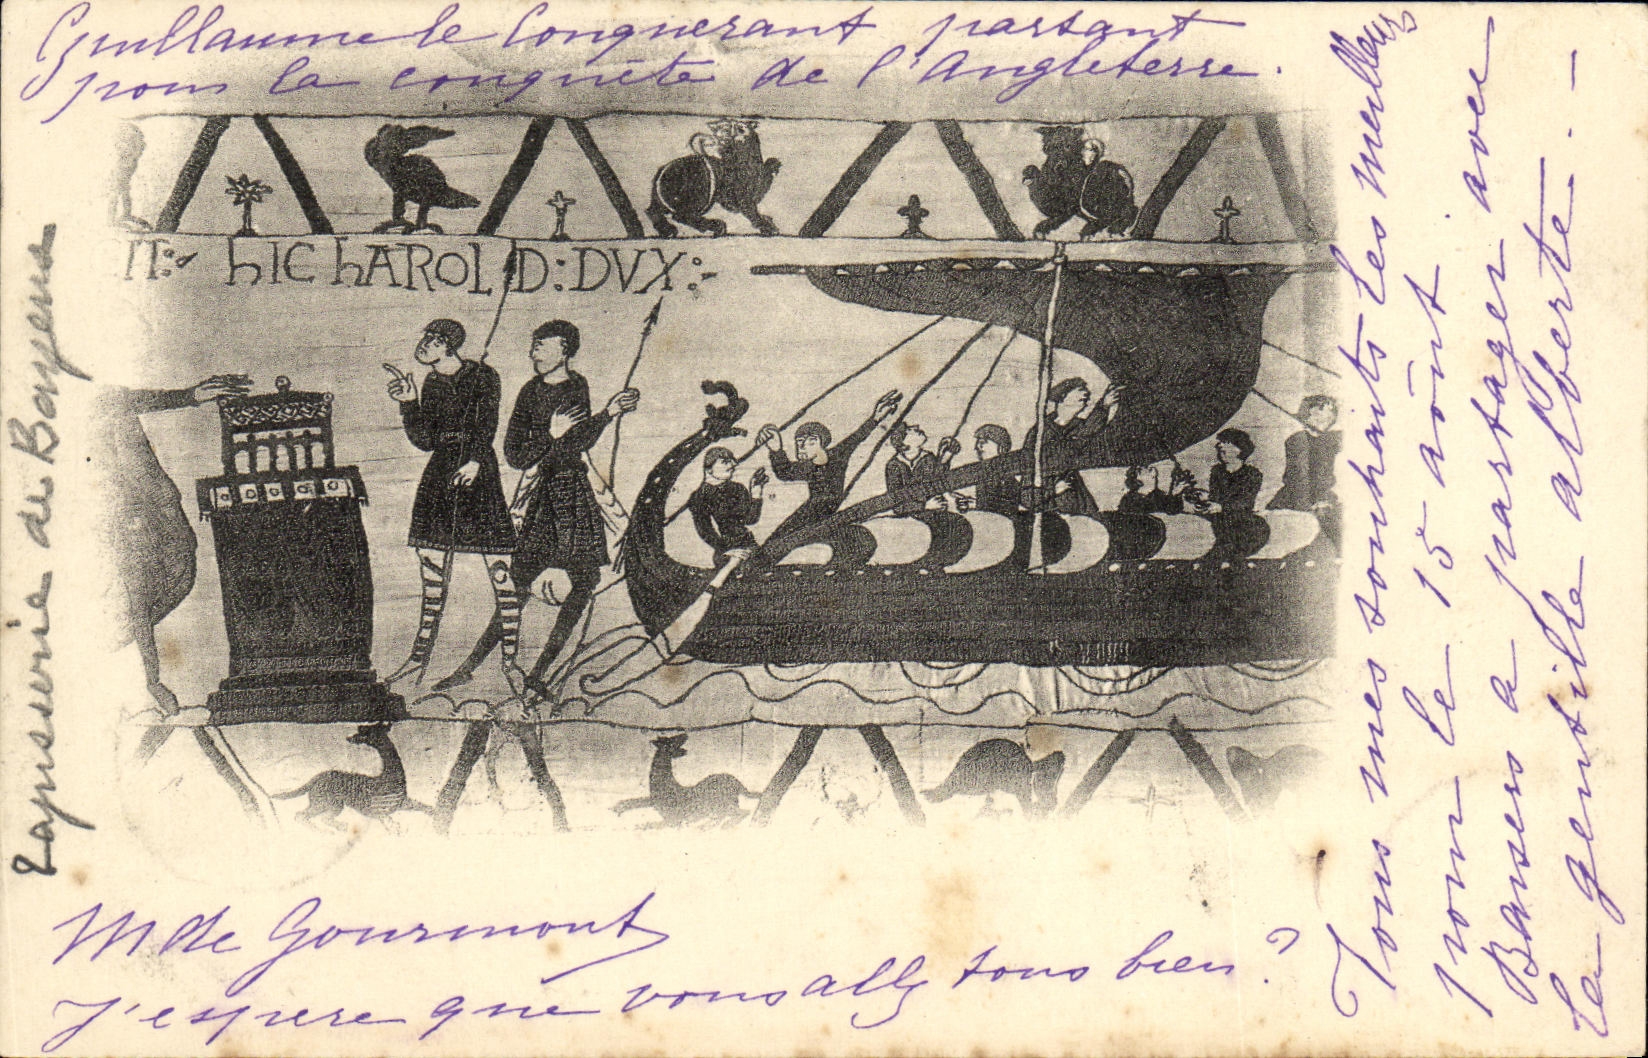 Guillaume le Conquerant partant
pour la conquête de l'Angleterre.
Tapisserie de Bayeux
IT: hIC hAROLD: DVX:
M de Gourmont
J'espère que vous allez tous bien?
Tous mes souhaits les meilleurs
pour le 15 août.
Baisers à partager avec
la gentille Alberte. —